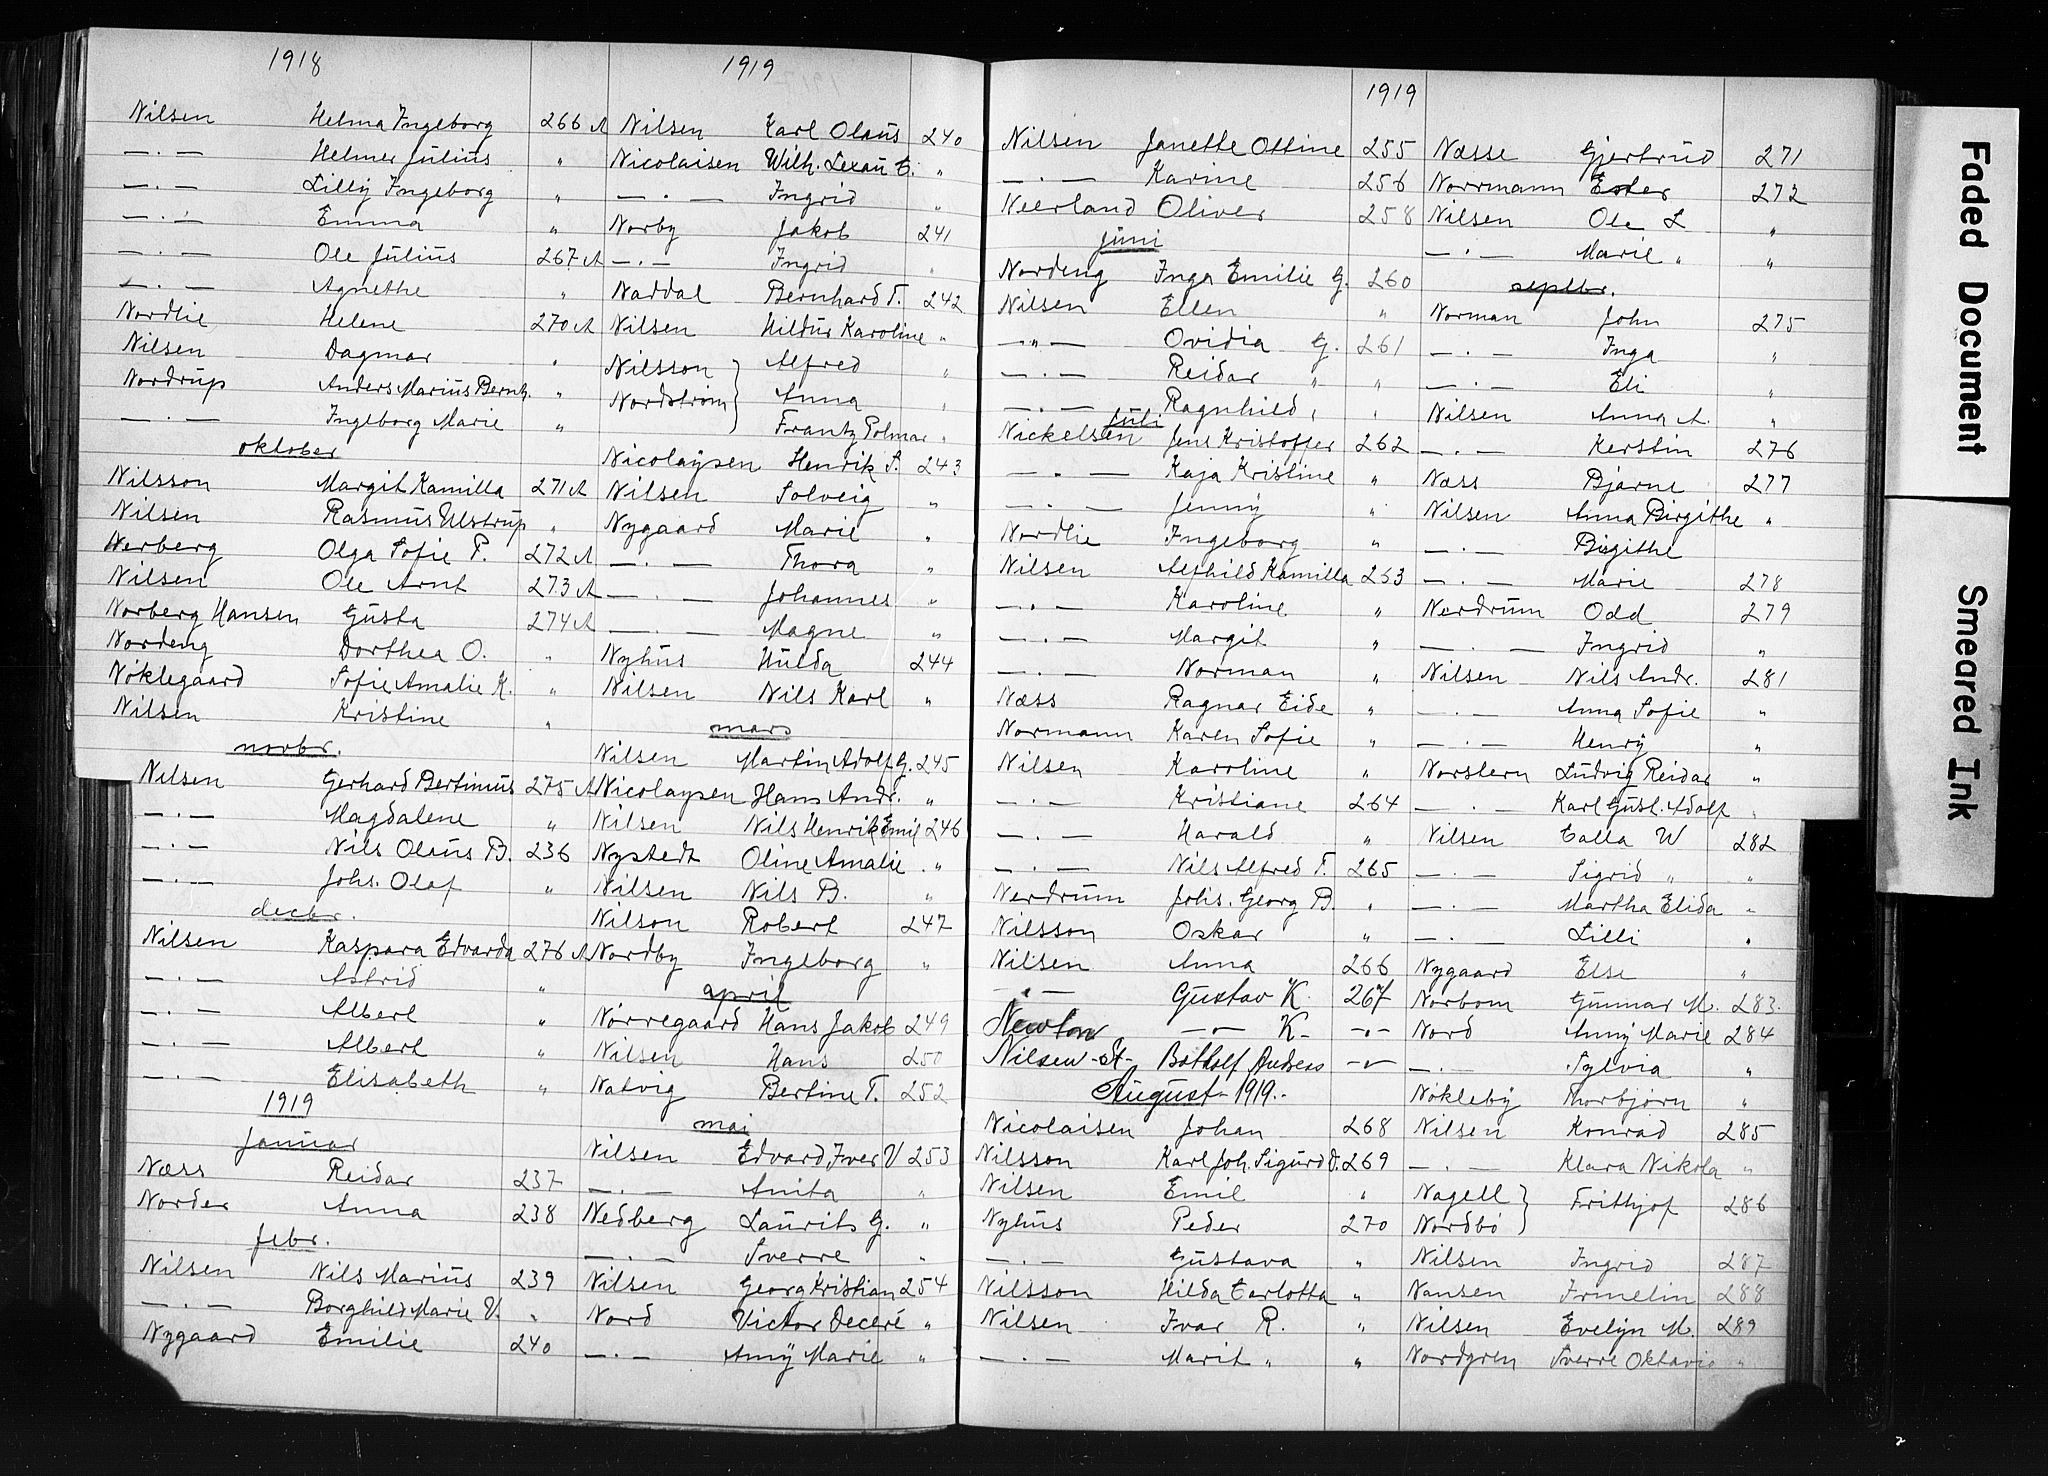 1918
Nilsen Helma Ingeborg 266 A
— . — Helmer Julius "
— . — Lilly Ingeborg "
— . — Emma "
— . — Ole Julius 267 A
— . — Agnethe "
Nordlie Helene 270 A
Nilsen Dagmar "
Nordrup Anders Marius Bernh. "
— . — Ingeborg Marie "
oktober
Nilsson Margit Kamilla 271 A
Nilsen Rasmus Ulstrup "
Nerberg Olga Sofie P. 272 A
Nilsen Ole Arnt 273 A
Norberg Hansen Gusta 274 A
Nordeng Dorthea O. "
Nöklegaard Sofie Amalie K. "
Nilsen Kristine "
novbr.
Nilsen Gerhard Bertinius 275 A
— . — Magdalene "
— . — Nils Olaus B. 236
— . — Johs. Olaf "
decbr.
Nilsen Kaspara Edvarda 276 A
— . — Astrid "
— . — Albert "
— . — Albert "
— . — Elisabeth "
1919
Januar
Næss Reidar 237
Norder Anna 238
febr.
Nilsen Nils Marius 239
— . — Borghild Marie V. "
Nygaard Emilie 240
1919
Nilsen Karl Olaus 240
Nicolaisen Wilh. C. "
— . — Ingrid "
Norby Jakob 241
— . — Ingrid "
Naddal Bernhard T. 242
Nilsen Hildur Karoline "
Nilsson } Alfred "
Nordström } Anna "
Frantz Polmar "
Nicolaysen Henrik S. 243
Nilsen Solveig "
Nygaard Marie "
— . — Thora "
— . — Johannes "
— . — Magne "
Nyhus Hulda 244
Nilsen Nils Karl "
mars
Nilsen Martin Adolf G. 245
Nicolaysen Hans Andr. "
Nilsen Nils Henrik Emil 246
Nystedt Oline Amalie "
Nilsen Nils B. "
Nilson Robert 247
Nordby Ingeborg "
april
Nörregaard Hans Jakob 249
Nilsen Hans 250
Natvig Bertine T. 252
mai
Nilsen Edvard, Iver V 253
— . — Anita "
Nedberg Laurits G. "
— . — Sverre "
Nilsen Georg Kristian 254
Nord Victor Deceré "
— . — Amy Marie "
1919
Nilsen Janette Ottine 255
— . — Karine 256
Neerland Oliver 258
juni
Nordeng Inga Emilie G. 260
Nilsen Ellen "
— " — Ovidia G. 261
— . — Reidar " "
— . — Ragnhild " "
juli
Nickelsen Jens Kristoffer 262
— . — Kaja Kristine "
— . — Jenny "
Nordlie Ingeborg "
Nilsen Alfhild Kamilla 263
— . — Karoline "
— . — Margit "
— . — Norman "
Næss Ragnar Eide "
Normann Karen Sofie "
Nilsen Karoline "
— . — Kristiane 264
— . — Harald "
— . — Nils Alfred T. 265
Nerdrum Johs. Georg B. "
Nilsson Oskar "
Nilsen Anna 266
— . — Gustav K. 267
Newton — . — K — . —
Nilsen - St - Botholf Andreas — " —
August - 1919.
Nicolaisen Johan 268
Nilsson Karl Joh. Sigurd V. 269
Nilsen Emil "
Nyhus Peder 270
— . — Gustava "
Nilsson Hilda Carlotta "
Nilsen Ivar R. "
— . — Marit " "
Næsse Gjertrud 271
Norrmann Ester 272
Nilsen Ole L "
— . — Marie " "
septbr.
Norman John 275
— . — Inga "
— . — Eli "
Nilsen Anna A. "
— . — Kerstin 276
Næss Bjarne 277
Nilsen Anna Birgithe "
— . — Birgithe
— . — Marie 278
Nerdrum Odd 279
— . — Ingrid "
Nilsen Nils Andr. 281
— . — Anna Sofie "
— . — Henry "
Norstern Ludvig Reidar "
— . — Karl Gust. Adolf "
Nilsen Calla W 282
— . — Sigrid " "
— . — Martha Elida "
— . — Lilli "
Nygaard Else "
Norbom Gunnar M. 283
Nord Anny Marie 284
— . — Sylvia "
Nökleby Thorbjörn "
Nilsen Konrad 285
— . — Klara Nikola "
Nagell } Frithjof 286
Nordbö }
Nilsen Ingrid 287
Nansen Irmelin 288
Nilsen Evelyn M. 289
Nordgren Sverre Oktavio "
Faded Document
Smeared Ink